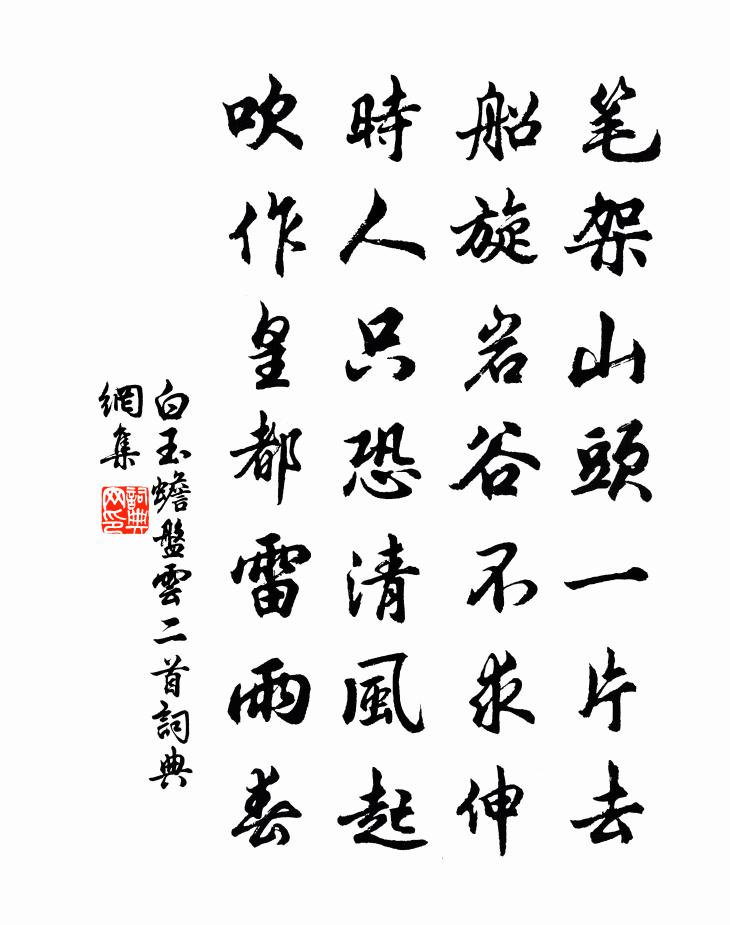 笔架山頭一片去
船旋岩谷不求伸
時人只恐清風起
吹作皇都雷雨春
白玉蟾盤雲二首詞典
網集
詞典
网印